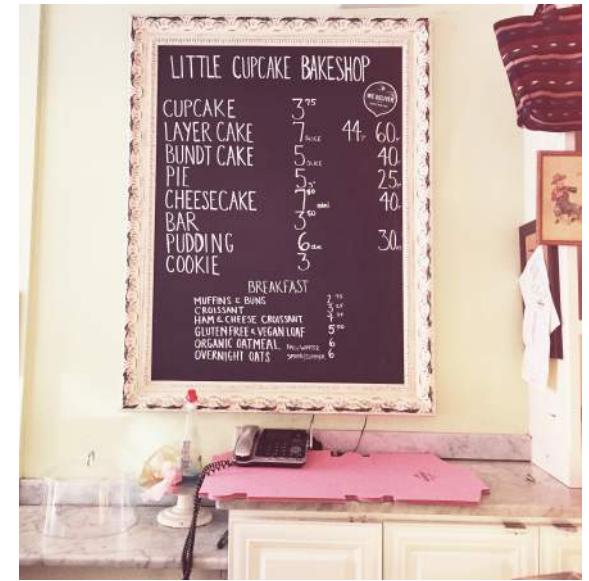 LITTLE CUPCAKE BAKESHOP
WE DELIVER
CUPCAKE 3 75
LAYER CAKE 7 SLICE 44 60
BUNDT CAKE 5 SLICE 40
PIE 5 25
CHEESECAKE 7 mini 40
BAR 3 50
PUDDING 6 30
COOKIE 3
BREAKFAST
MUFFINS & BUNS 2 75
CROISSANT 3 25
HAM & CHEESE CROISSANT 4
GLUTEN FREE & VEGAN LOAF 5 50
ORGANIC OATMEAL FALL/WINTER 6
OVERNIGHT OATS SPRING/SUMMER 6